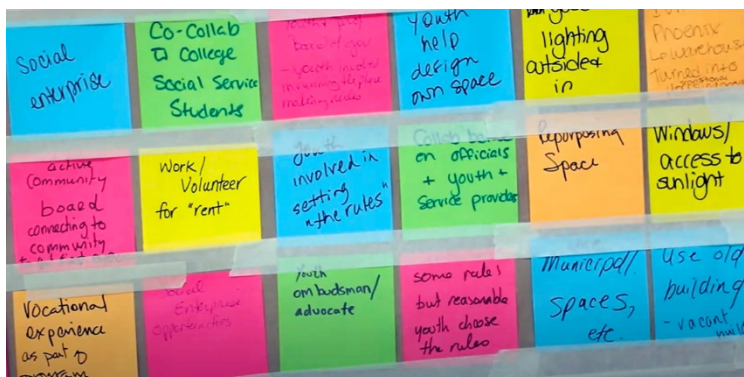 Social
enterprise
Co-Collab
College
Social Service
Students
board of
- youth involved
in running the place
making rules
Youth
help
design
own space
lighting
outside &
in
Phoenix
warehouse
turned into
active
community
board
connecting to
community
Work/
Volunteer
for "rent"
Youth
involved in
setting
"the rules"
Collab
on officials
+ youth +
service provides
Repurposing
Space
Windows/
access to
sunlight
Vocational
experience
as part
program
Social
Enterprise
opportunities
Youth
ombudsman/
advocate
some rules
but reasonable
youth choose
the rules
Municipal
spaces,
etc.
Use old
building
- vacant